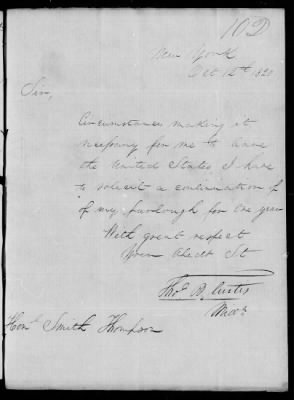 10D
New York
Oct 12th 1820
Sir,
Circumstances making it
necessary for me to leave
the United States I have
to solicit a continuation of
of my furlough for one year
With great respect
Your Obedt St
Thos B, Curtis
Honl. Smith Thompson